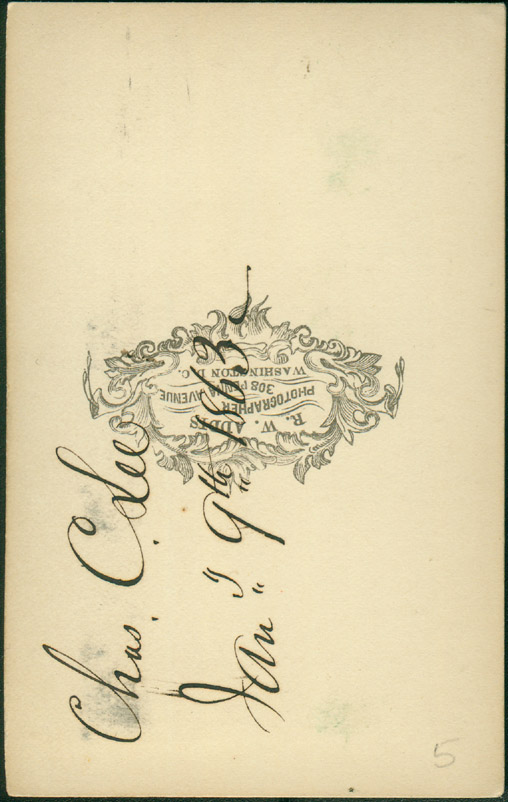 Chas. C. Lee
Jan'y 9th 1863
R. W. ADDIS
PHOTOGRAPHER
308 PENNA. AVENUE
WASHINGTON D.C.
5